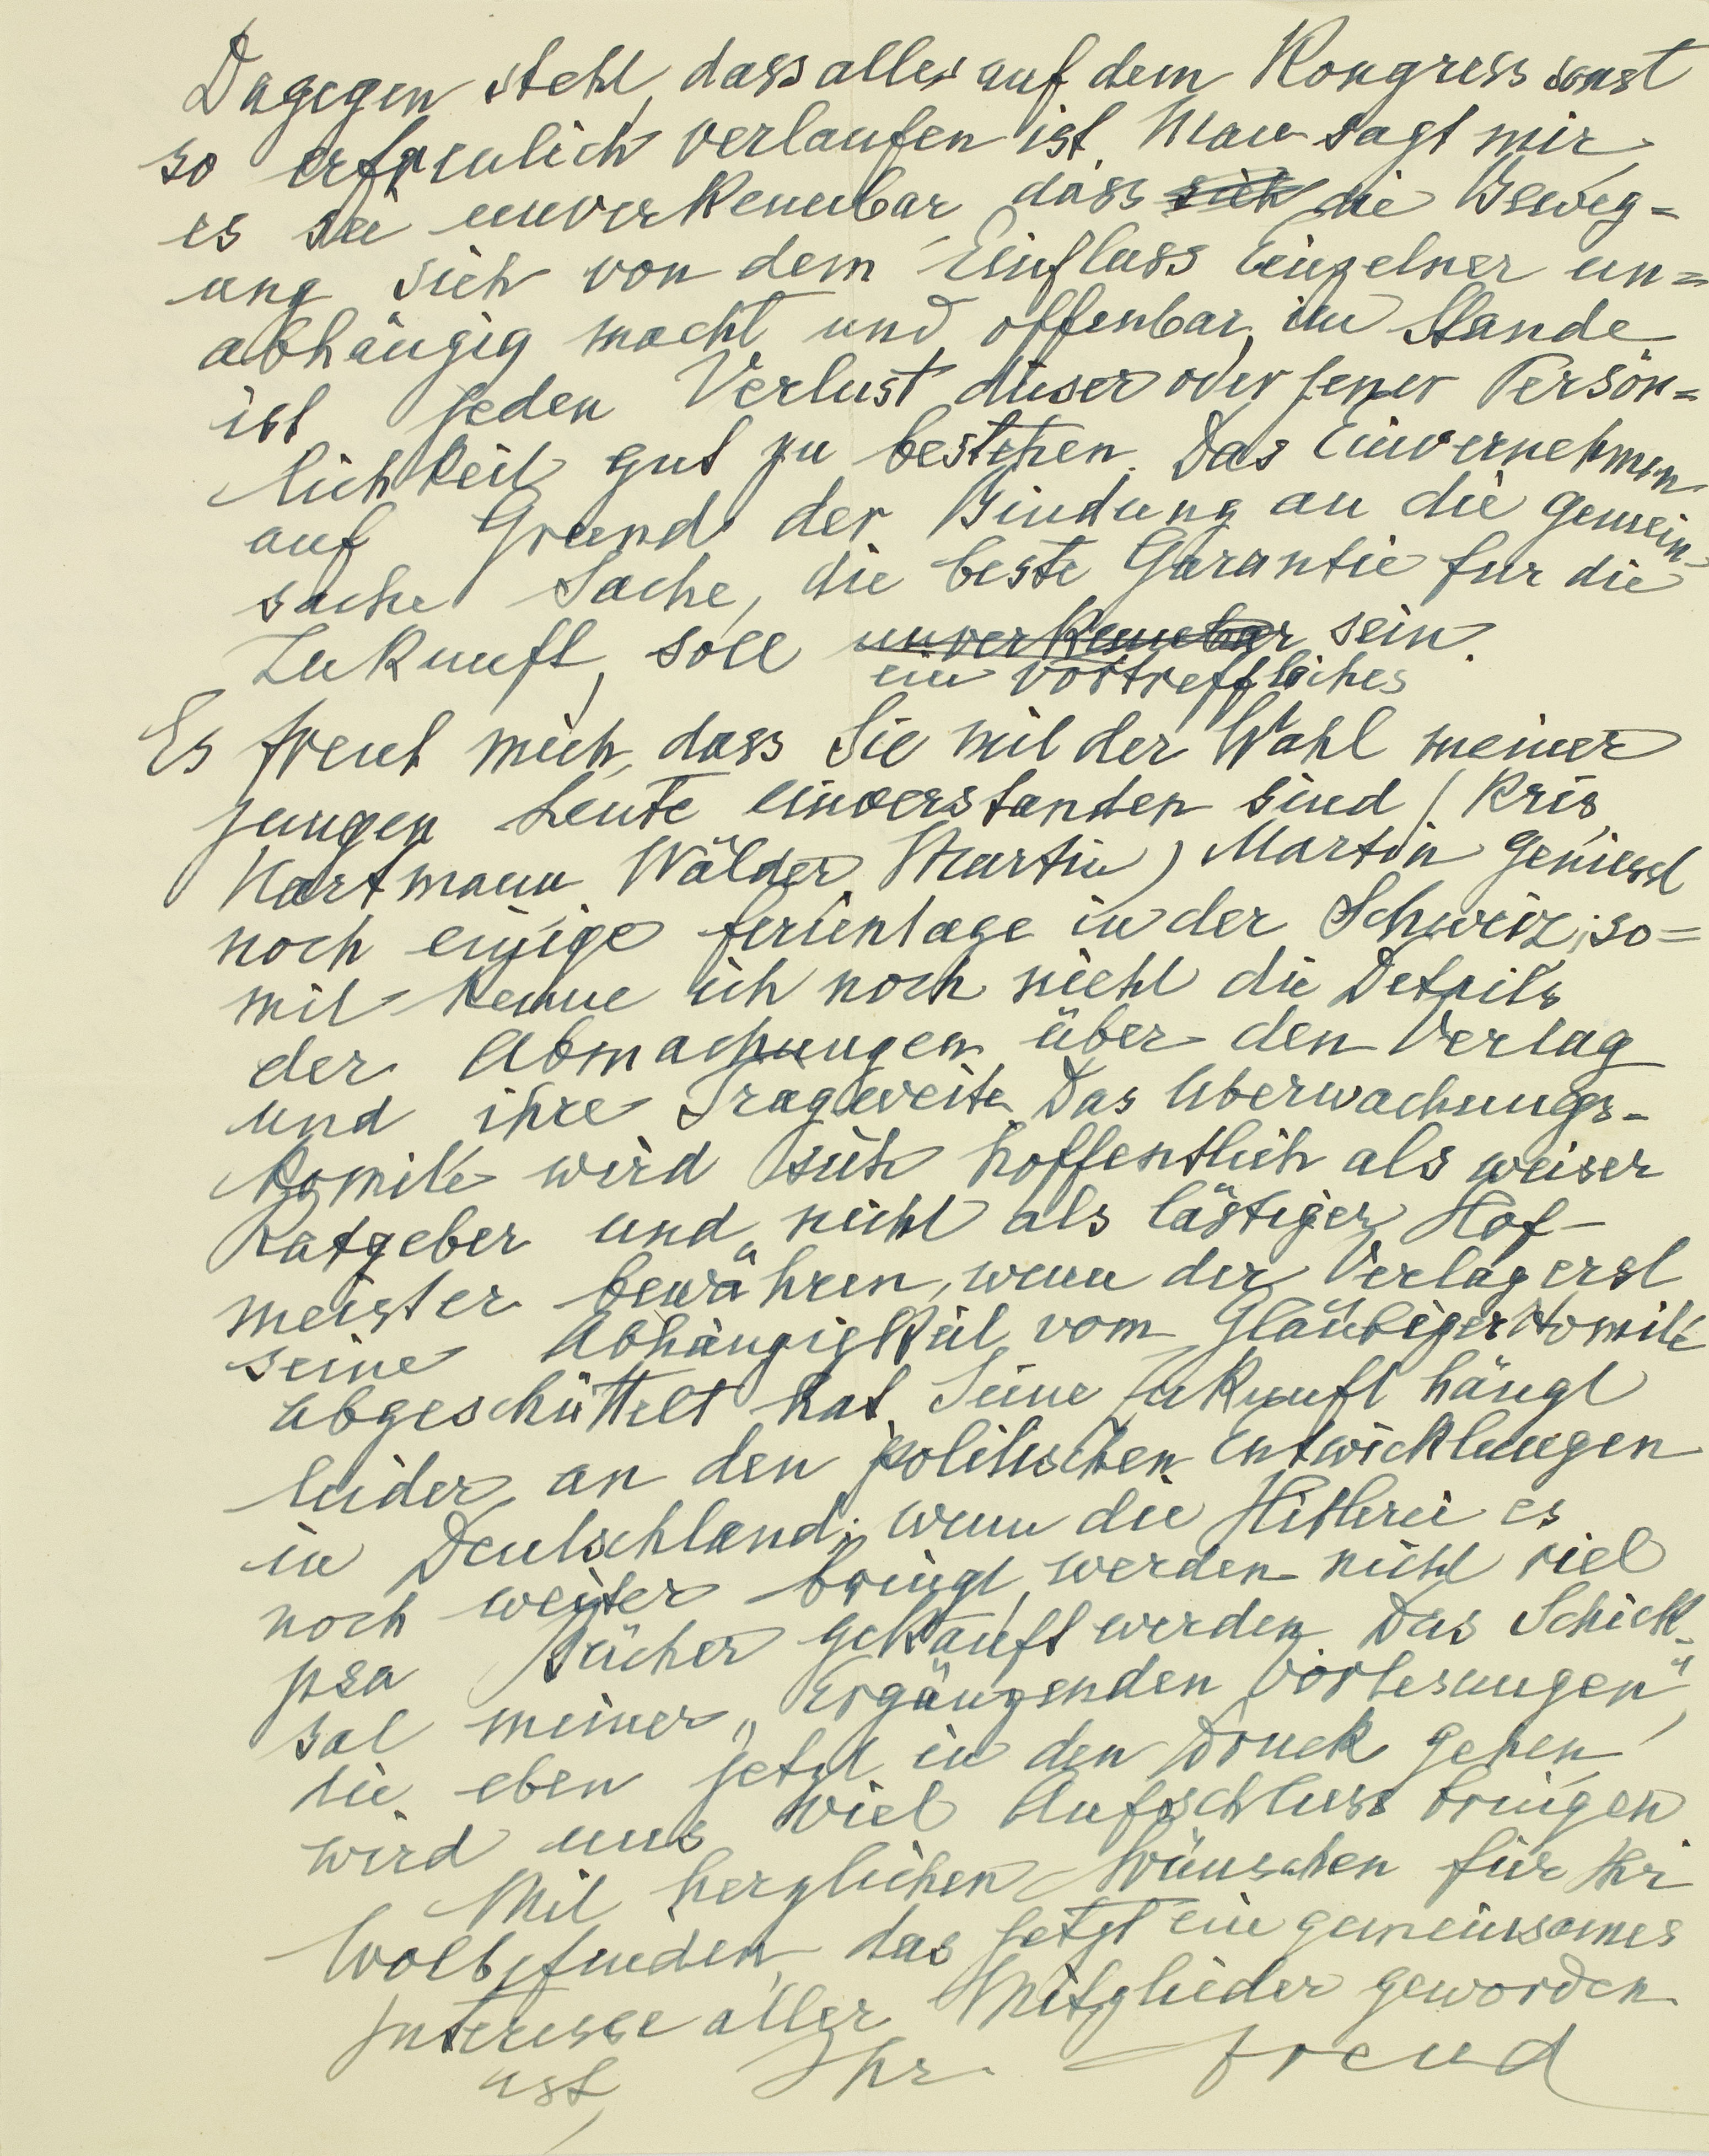 Dagegen steht, dass alles auf dem Kongress sonst
so erfreulich verlaufen ist. Man sagt mir
es sei unverkennbar, dass sich die Beweg=
ung sich von dem Einfluss Einzelner un=
abhängig macht und offenbar im Stande
ist jeden Verlust dieser oder jener Persön=
lichkeit gut zu bestehen. Das Einvernehmen
auf Grund der Bindung an die gemein-
sache Sache, die beste Garantie fur die
Zukunft, soll unverkennbar sein.
ein vortreffliches
Es freut mich, dass Sie mit der Wahl meiner
jungen Leute einverstanden sind (Kris,
Hartmann, Wälder, Martin) Martin geniesst
noch einige Ferientage in der Schweiz; so=
mit kenne ich noch nicht die Details
der Abmachungen über den Verlag
und ihre Tragweite. Das Uberwachungs-
komité wird sich hoffentlich als weiser
Ratgeber und nicht als lästiger Hof-
meister bewähren, wenn der Verlag erst
seine Abhängigkeit vom Gläubigerkomité
abgeschüttelt hat. Seine Zukunft hängt
leider an den politischen Entwicklungen
in Deutschland; wenn die Hitlerei es
noch weiter bringt, werden nicht viel
psa Bücher gekauft werden. Das Schick-
sal meiner „Ergänzenden Vorlesungen",
die eben jetzt in den Druck gehen,
wird uns viel Aufschluss bringen
Mit herzlichen Wünschen für Ihr
Wolbefinden, das jetzt ein gemeinsames
Interesse aller Mitglieder geworden
ist, Ihr Freud